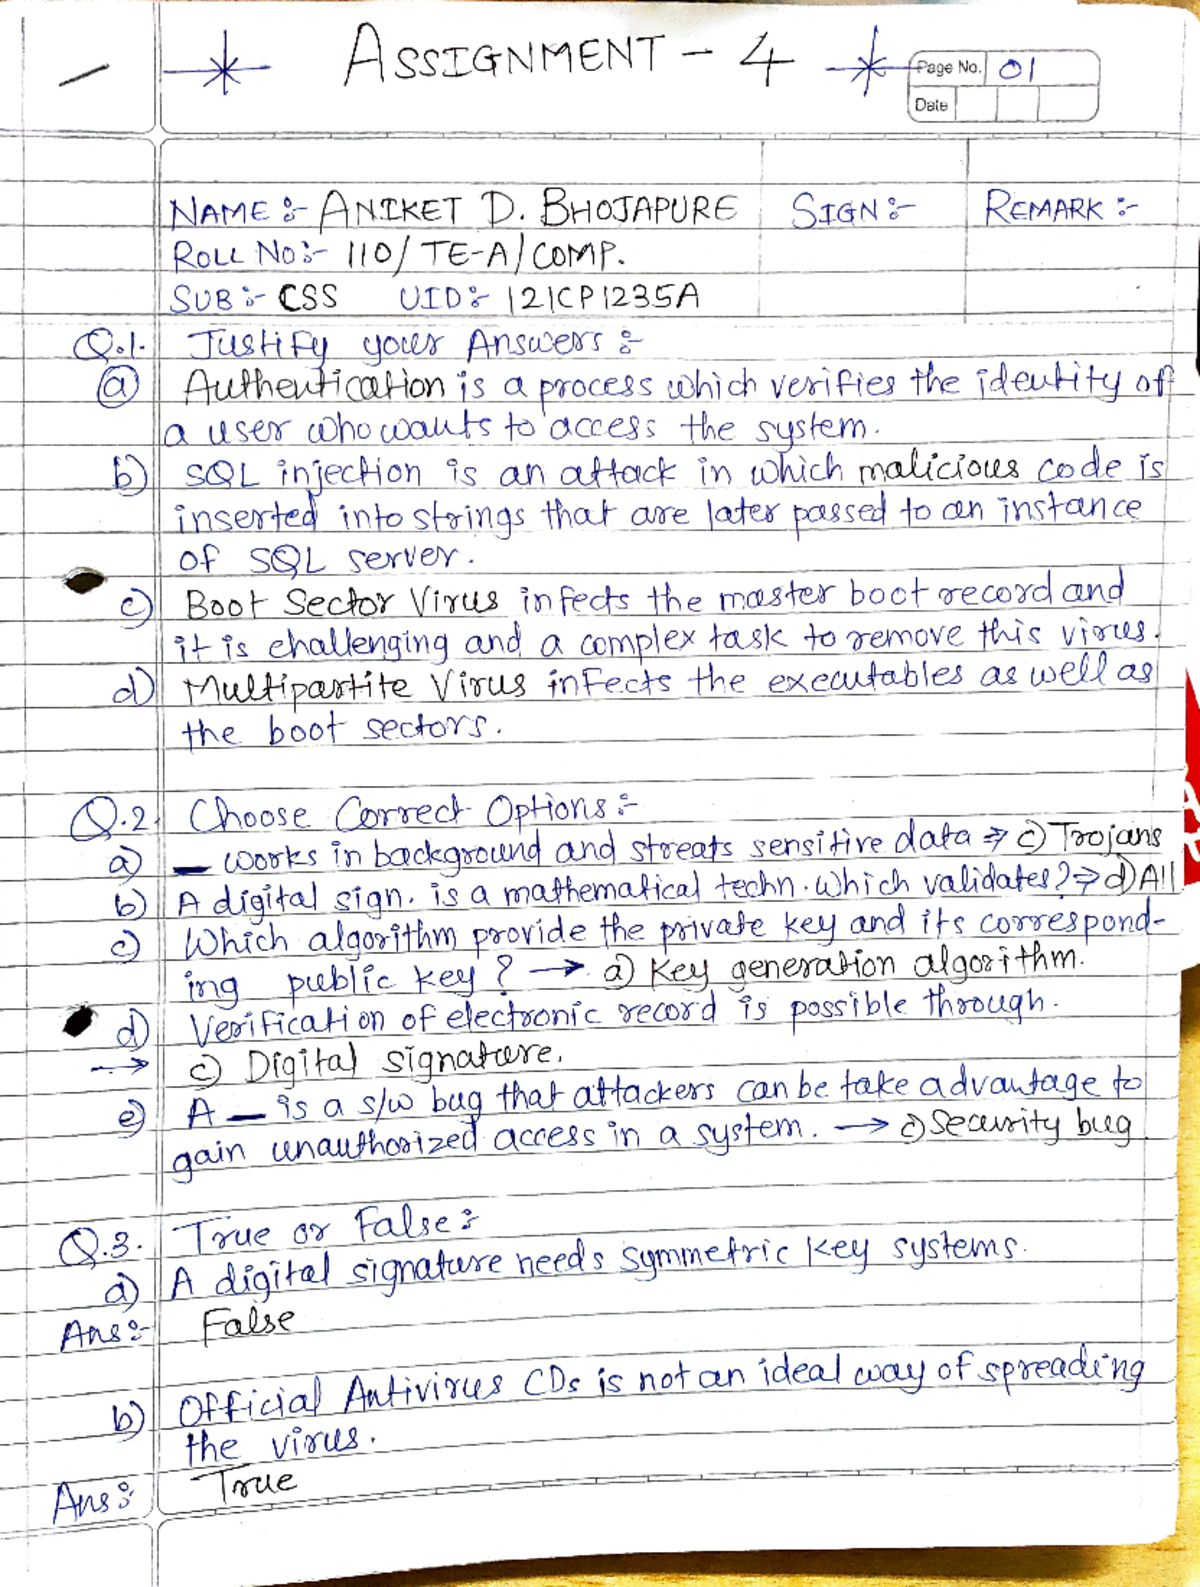 ASSIGNMENT - 4
Page No. 01
Date
NAME :- ANIKET D. BHOJAPURE SIGN :- REMARK :-
ROLL NO :- 110/TE-A/COMP.
SUB :- CSS UID :- 121CP1235A
Q.1. Justify your Answers :-
a) Authentication is a process which verifies the identity of
a user who wants to access the system.
b) SQL injection is an attack in which malicious code is
inserted into strings that are later passed to an instance
of SQL server.
c) Boot Sector Virus infects the master boot record and
it is challenging and a complex task to remove this virus.
d) Multipartite Virus infects the executables as well as
the boot sectors.
Q.2. Choose Correct Options :-
a) — works in background and streats sensitive data ⇒ c) Trojans
b) A digital sign. is a mathematical techn. which validates? ⇒ d) All
c) Which algorithm provide the private key and its correspond-
ing public key ? → a) Key generation algorithm.
d) Verification of electronic record is possible through.
→ c) Digital signature.
e) A — is a s/w bug that attackers can be take advantage to
gain unauthorized access in a system. → c) Security bug.
Q.3. True or False :-
a) A digital signature needs symmetric key systems.
Ans :- False
b) Official Antivirus CDs is not an ideal way of spreading
the virus.
Ans :- True